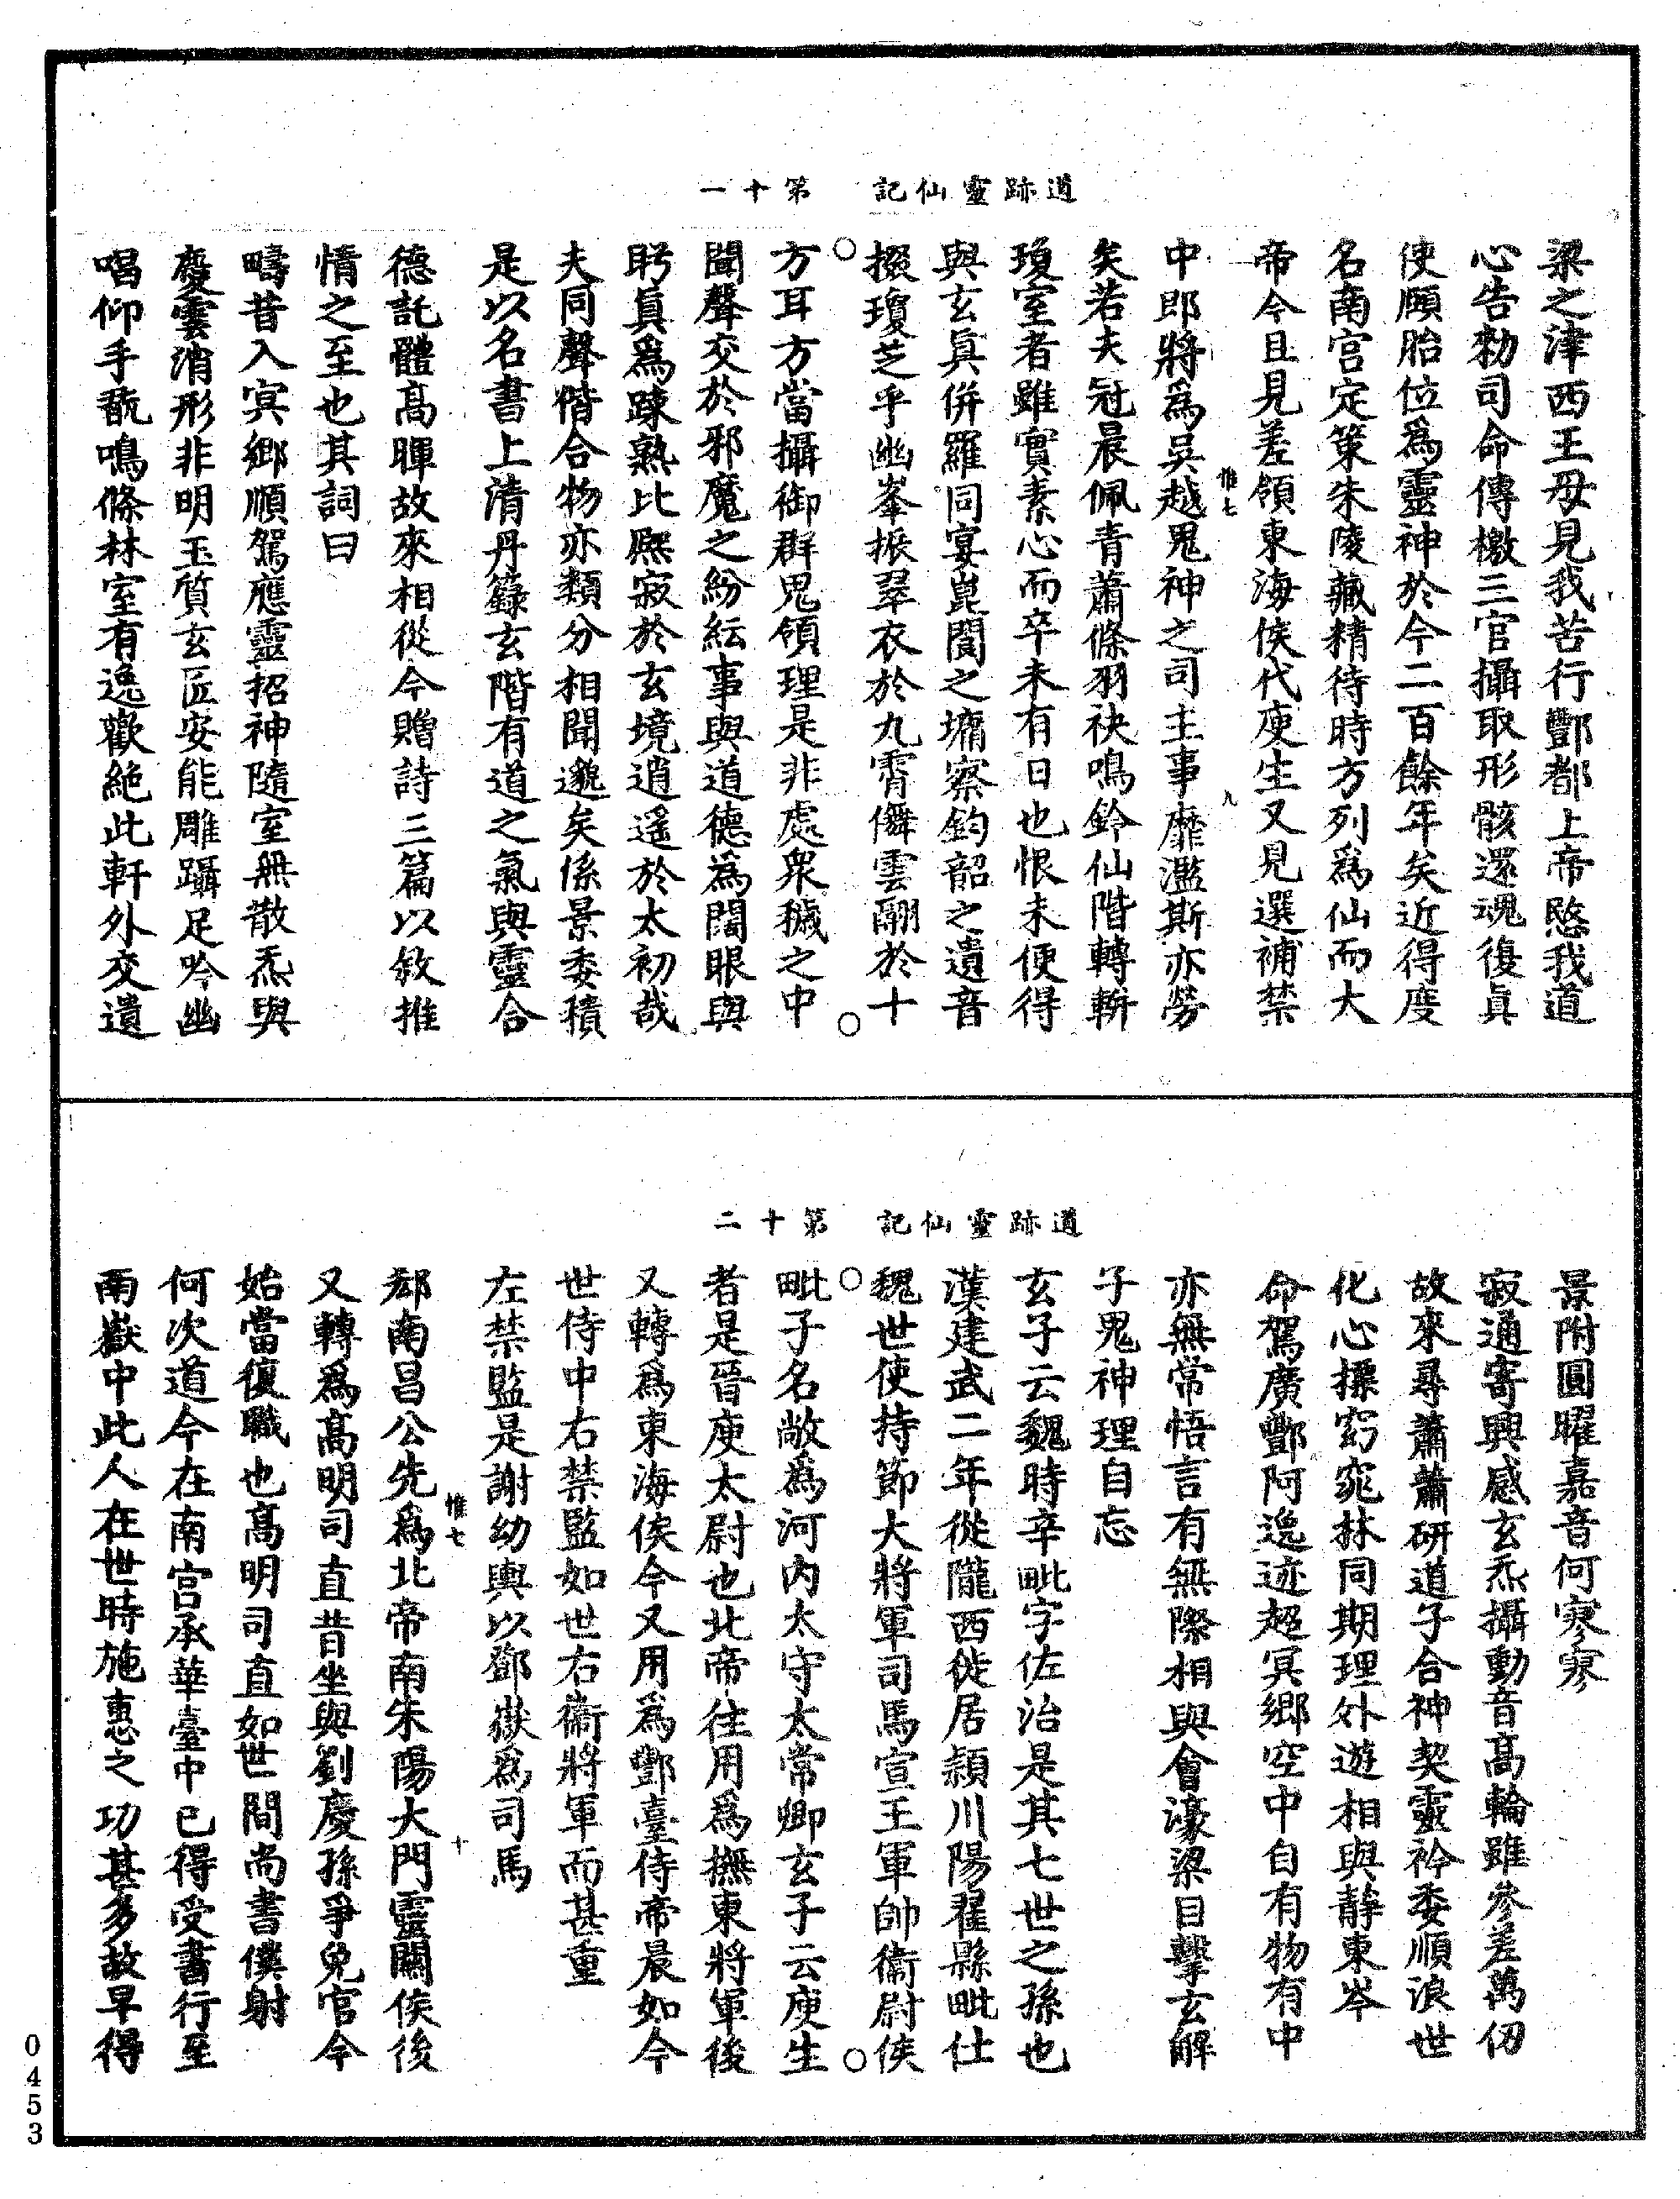 道跡靈仙記　第十一
梁之津西王母見我苦行酆都上帝愍我道
心告勑司命傳檄三官攝取形骸還魂復眞
使頤胎位爲靈神於今二百餘年矣近得度
名南宮定策朱陵藏精待時方列爲仙而大
帝今且見差領東海侯代庾生又見選補禁
惟七　九
中郎將爲吳越鬼神之司主事靡濫斯亦勞
矣若夫冠晨佩青蕭條羽袂鳴鈴仙階轉軿
瓊室者雖實素心而卒未有日也恨未便得
與玄眞併羅同宴崑閬之墉察鈞韶之遺音
掇瓊芝乎幽峯振翠衣於九霄儛雲翮於十
方耳方當攝御群鬼領理是非處衆穢之中
聞聲交於邪魔之紛紜事與道德爲闊眼與
眄眞爲踈熟比熈寂於玄境逍遥於太初哉
夫同聲偕合物亦類分相聞邈矣係景委積
是以名書上清丹籙玄階有道之氣與靈合
德託體高暉故來相從今贈詩三篇以敘推
情之至也其詞曰
疇昔入冥鄉順駕應靈招神隨室無散炁與
慶雲消形非明玉質玄匠安能雕躡足吟幽
唱仰手翫鳴條林室有逸歡絶此軒外交遺
道跡靈仙記　第十二
景附圓曜嘉音何寥寥
寂通寄興感玄炁攝動音高輪雖參差萬仞
故來尋蕭蕭研道子合神契靈衿委順浪世
化心摽窈窕林同期理外遊相與靜東岑
命駕廣酆阿逸迹超冥鄉空中自有物有中
亦無常悟言有無際相與會濠梁目擊玄解
子鬼神理自忘
玄子云魏時辛毗字佐治是其七世之孫也
漢建武二年從隴西徙居潁川陽翟縣毗仕
魏世使持節大將軍司馬宣王軍帥衞尉侯
毗子名敞爲河内太守太常卿玄子云庾生
者是晉庾太尉也北帝往用爲撫東將軍後
又轉爲東海侯今又用爲酆臺侍帝晨如今
世侍中右禁監如世右衞將軍而甚重
左禁監是謝幼輿以鄧嶽爲司馬
惟七　十
郄南昌公先爲北帝南朱陽大門靈關侯後
又轉爲高明司直昔坐與劉慶孫爭免官今
始當復職也高明司直如世間尚書僕射
何次道今在南宮承華臺中已得受書行至
南嶽中此人在世時施惠之功甚多故早得
0453